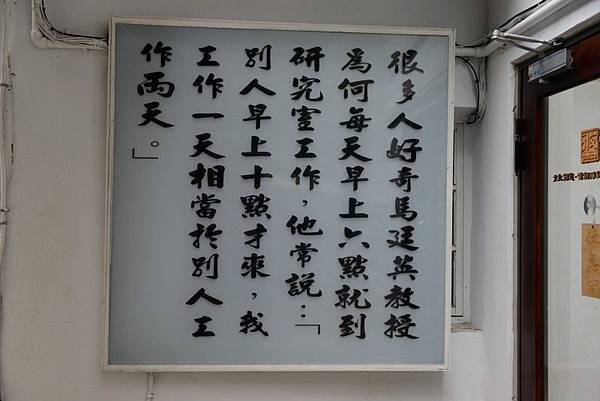 很多人好奇馬廷英教授
為何每天早上六點就到
研究室工作，他常說：「
別人早上十點才來，我
工作一天相當於別人工
作兩天。」